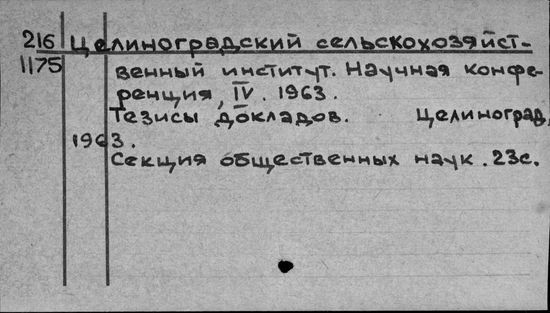 216 Целиноградский сельскохозяйст-
1175 венный институт. Научная конфе-
ренция, IV. 1963.
Тезисы докладов. Целиноград,
1963.
Секция общественных наук. 23с.